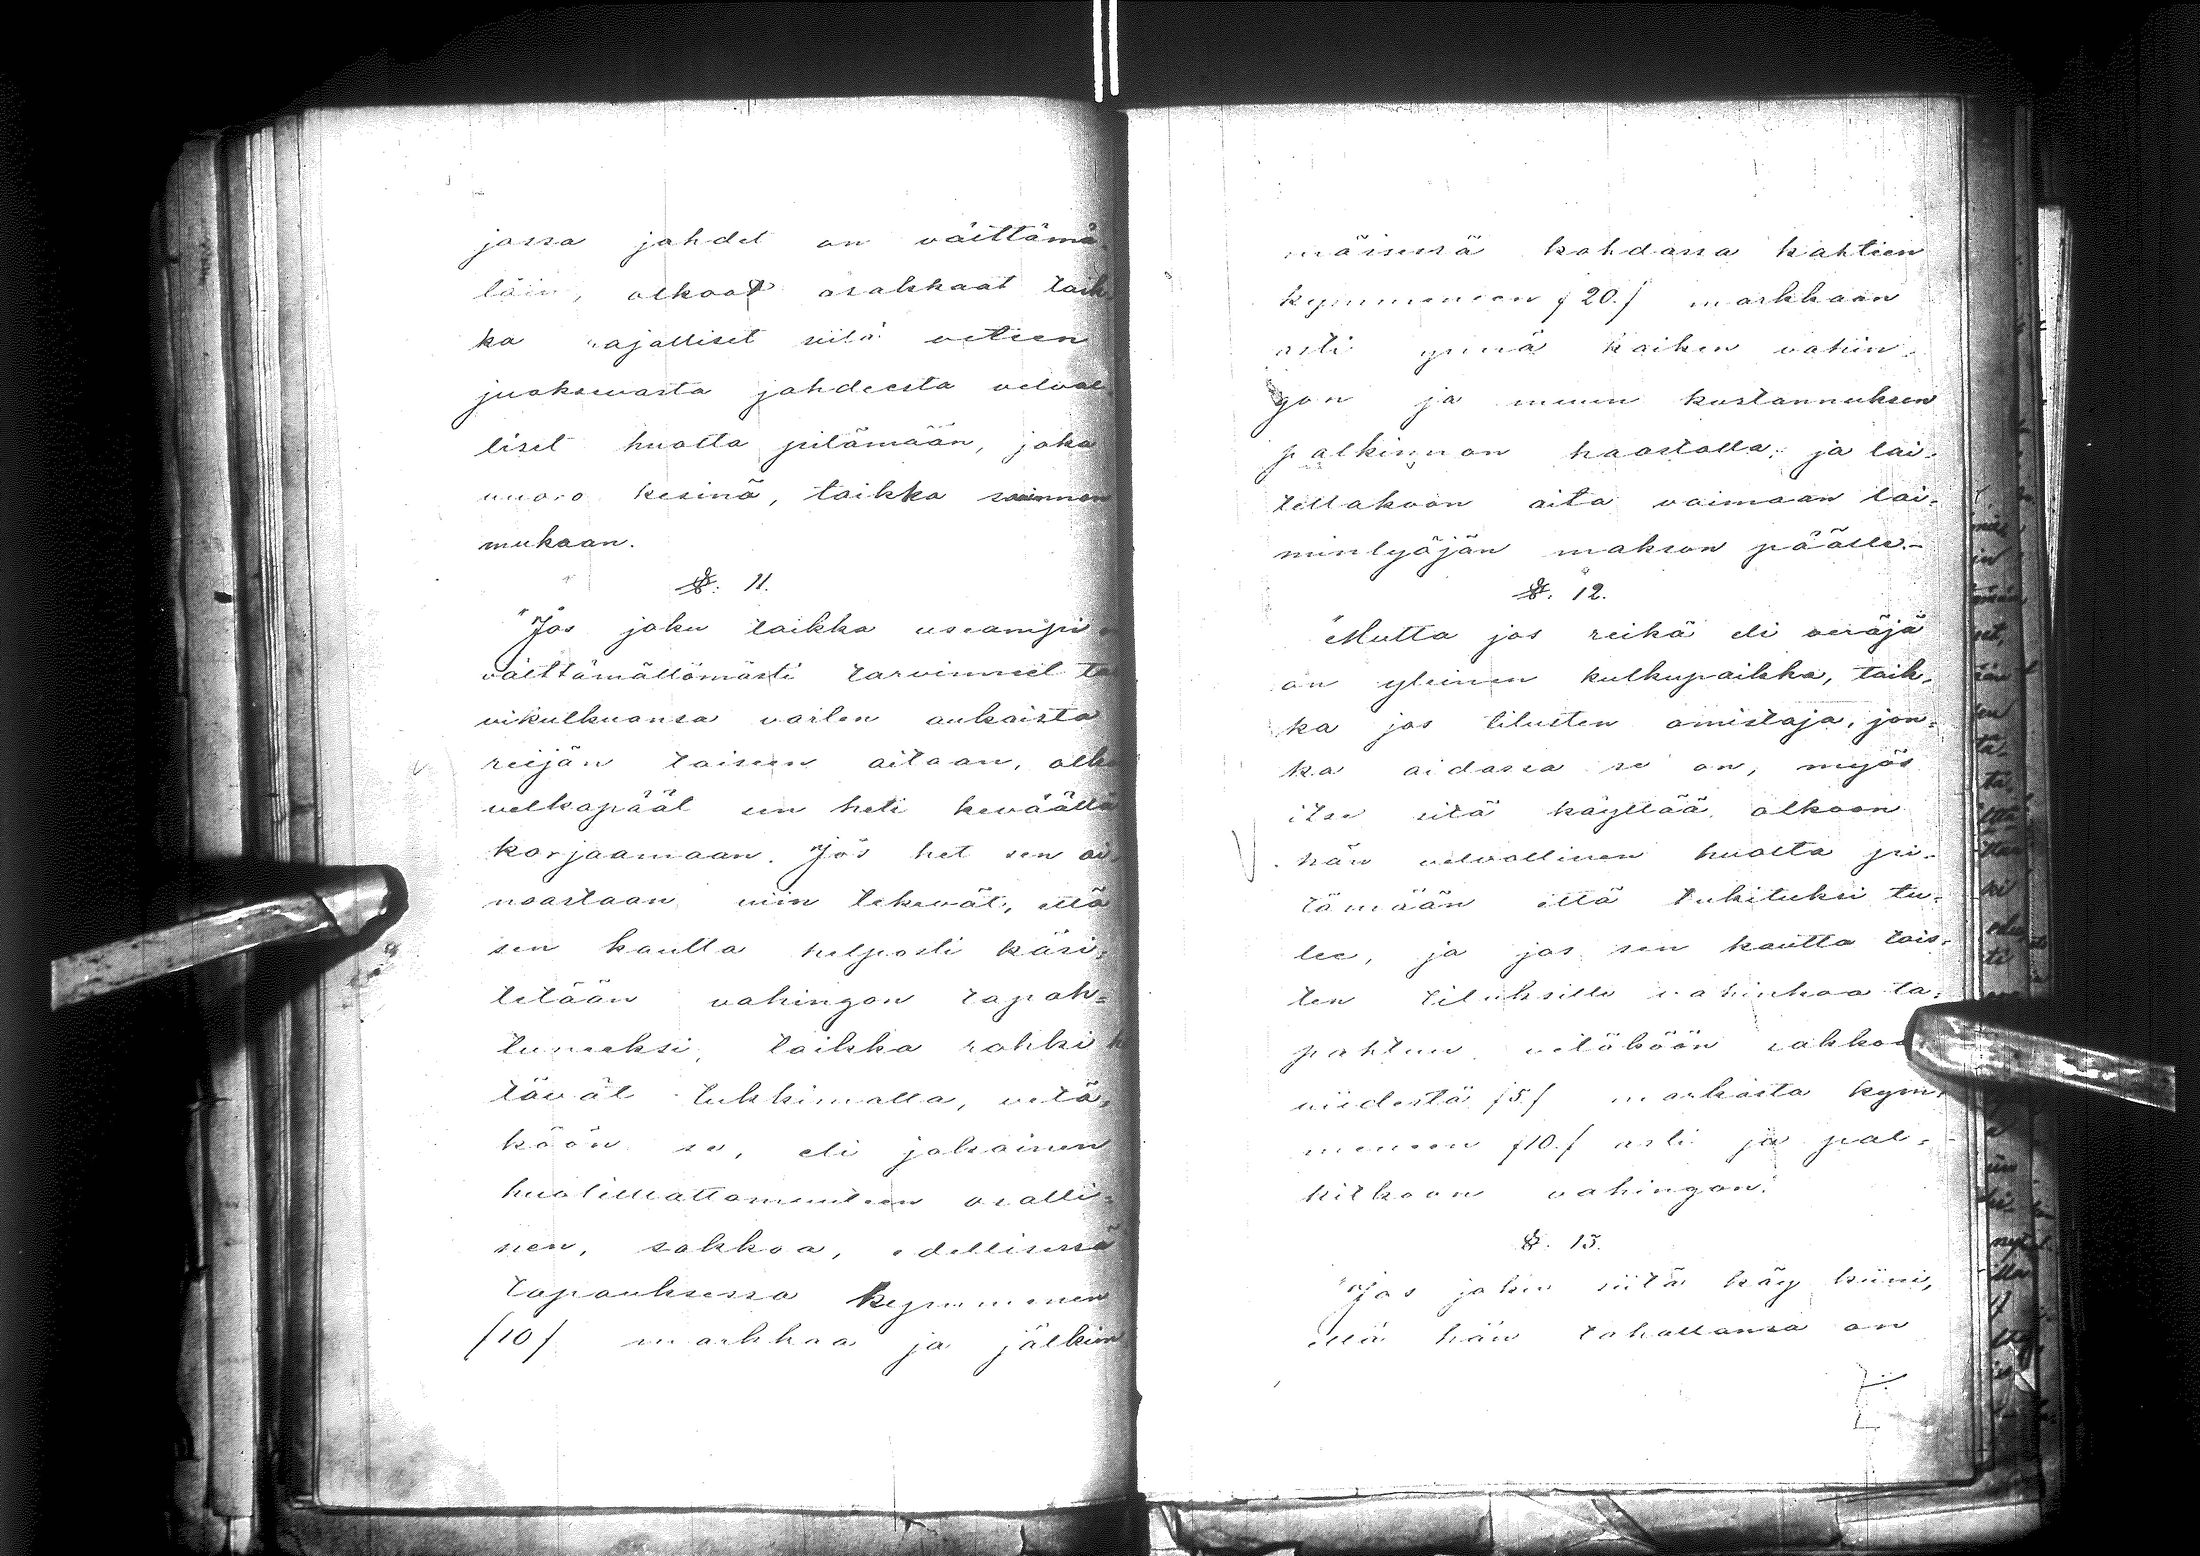 jossa johdet on väittämä
läin, olkoot osakkaat taik-
ka rajalliset siitä vetien
juoksevasta johdeesta velvol
liset huolta pitämään, joka
vuoro kesinä, taikka suinnan
mukaan.
§: 11.
"Jos joku taikka useampi
välttämättömästi tarvinneet ta
vikulkuansa varten aukaista
reijän toiseen aitaan, olk
velkapäät sen heti keväällä
korjaamaan. Jos het sen ai-
noastaan niin tekevät, että
sen kautta helposti käsi-
tetään vahingon tapah-
tuneeksi, taikka rohki
tävät tukkimatta, vetä-
köön se, eli jokainen
huolimattomuuteen osalli-
nen, sakkoa, edellisessä
tapauksessa kymmenen
/10/ markkaa ja jälkim
mäisessä kohdassa kahteen
kymmeneen /20./ markkaan
asti ynnä kaiken vahin-
gon ja muun kustannuksen
palkinnon haastolla; ja lai-
tettakoon aita voimaan lai-
minlyöjän makson päälle.-
§. 12.
"Mutta jos reikä eli veräjä
on yleinen kulkupaikka, taik-
ka jos tilusten omistaja, jon-
ka aidassa se on, myös
itse sitä käyttää, olkoon
hän velvollinen huolta pi-
tämään että tukituksi tu-
lee, ja jos sen kautta tois-
ten tiluksille vahinkoa ta-
pahtuu, vetäköön sakkoa
viidestä /5./ markasta kym-
meneen /10./ asti ja pal-
kitkoon vahingon.
§. 13.
"Jos joku siitä käy kiini,
että hän tahallansa on